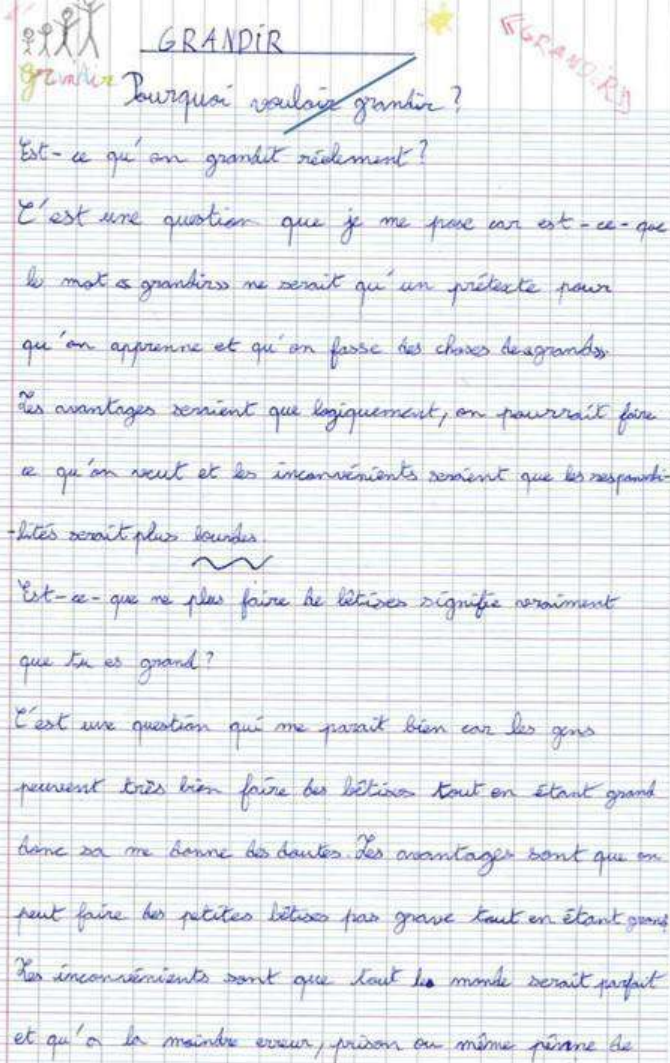 GRANDiR
«GRANDiR»
grandir
Pourquoi vouloir grandir ?
Est-ce qu'on grandit réelement ?
C'est une question que je me pose car est-ce-que
le mot « grandir » ne serait qu'un prétexte pour
qu'on apprenne et qu'on fasse des choses de « grands ».
Les avantages seraient que logiquement, on pourrait faire
ce qu'on veut et les inconvénients seraient que les responsabi-
-lités serait plus lourdes.
Est-ce-que ne plus faire de bêtises signifie vraiment
que tu es grand ?
C'est une question qui me parait bien car les gens
peuvent très bien faire des bêtises tout en étant grand
donc sa me donne des doutes. Les avantages sont que on
peut faire des petites bêtises pas grave tout en étant grand
Les inconvénients sont que tout le monde serait parfait
et qu'a la moindre erreur, prison ou même peinne de